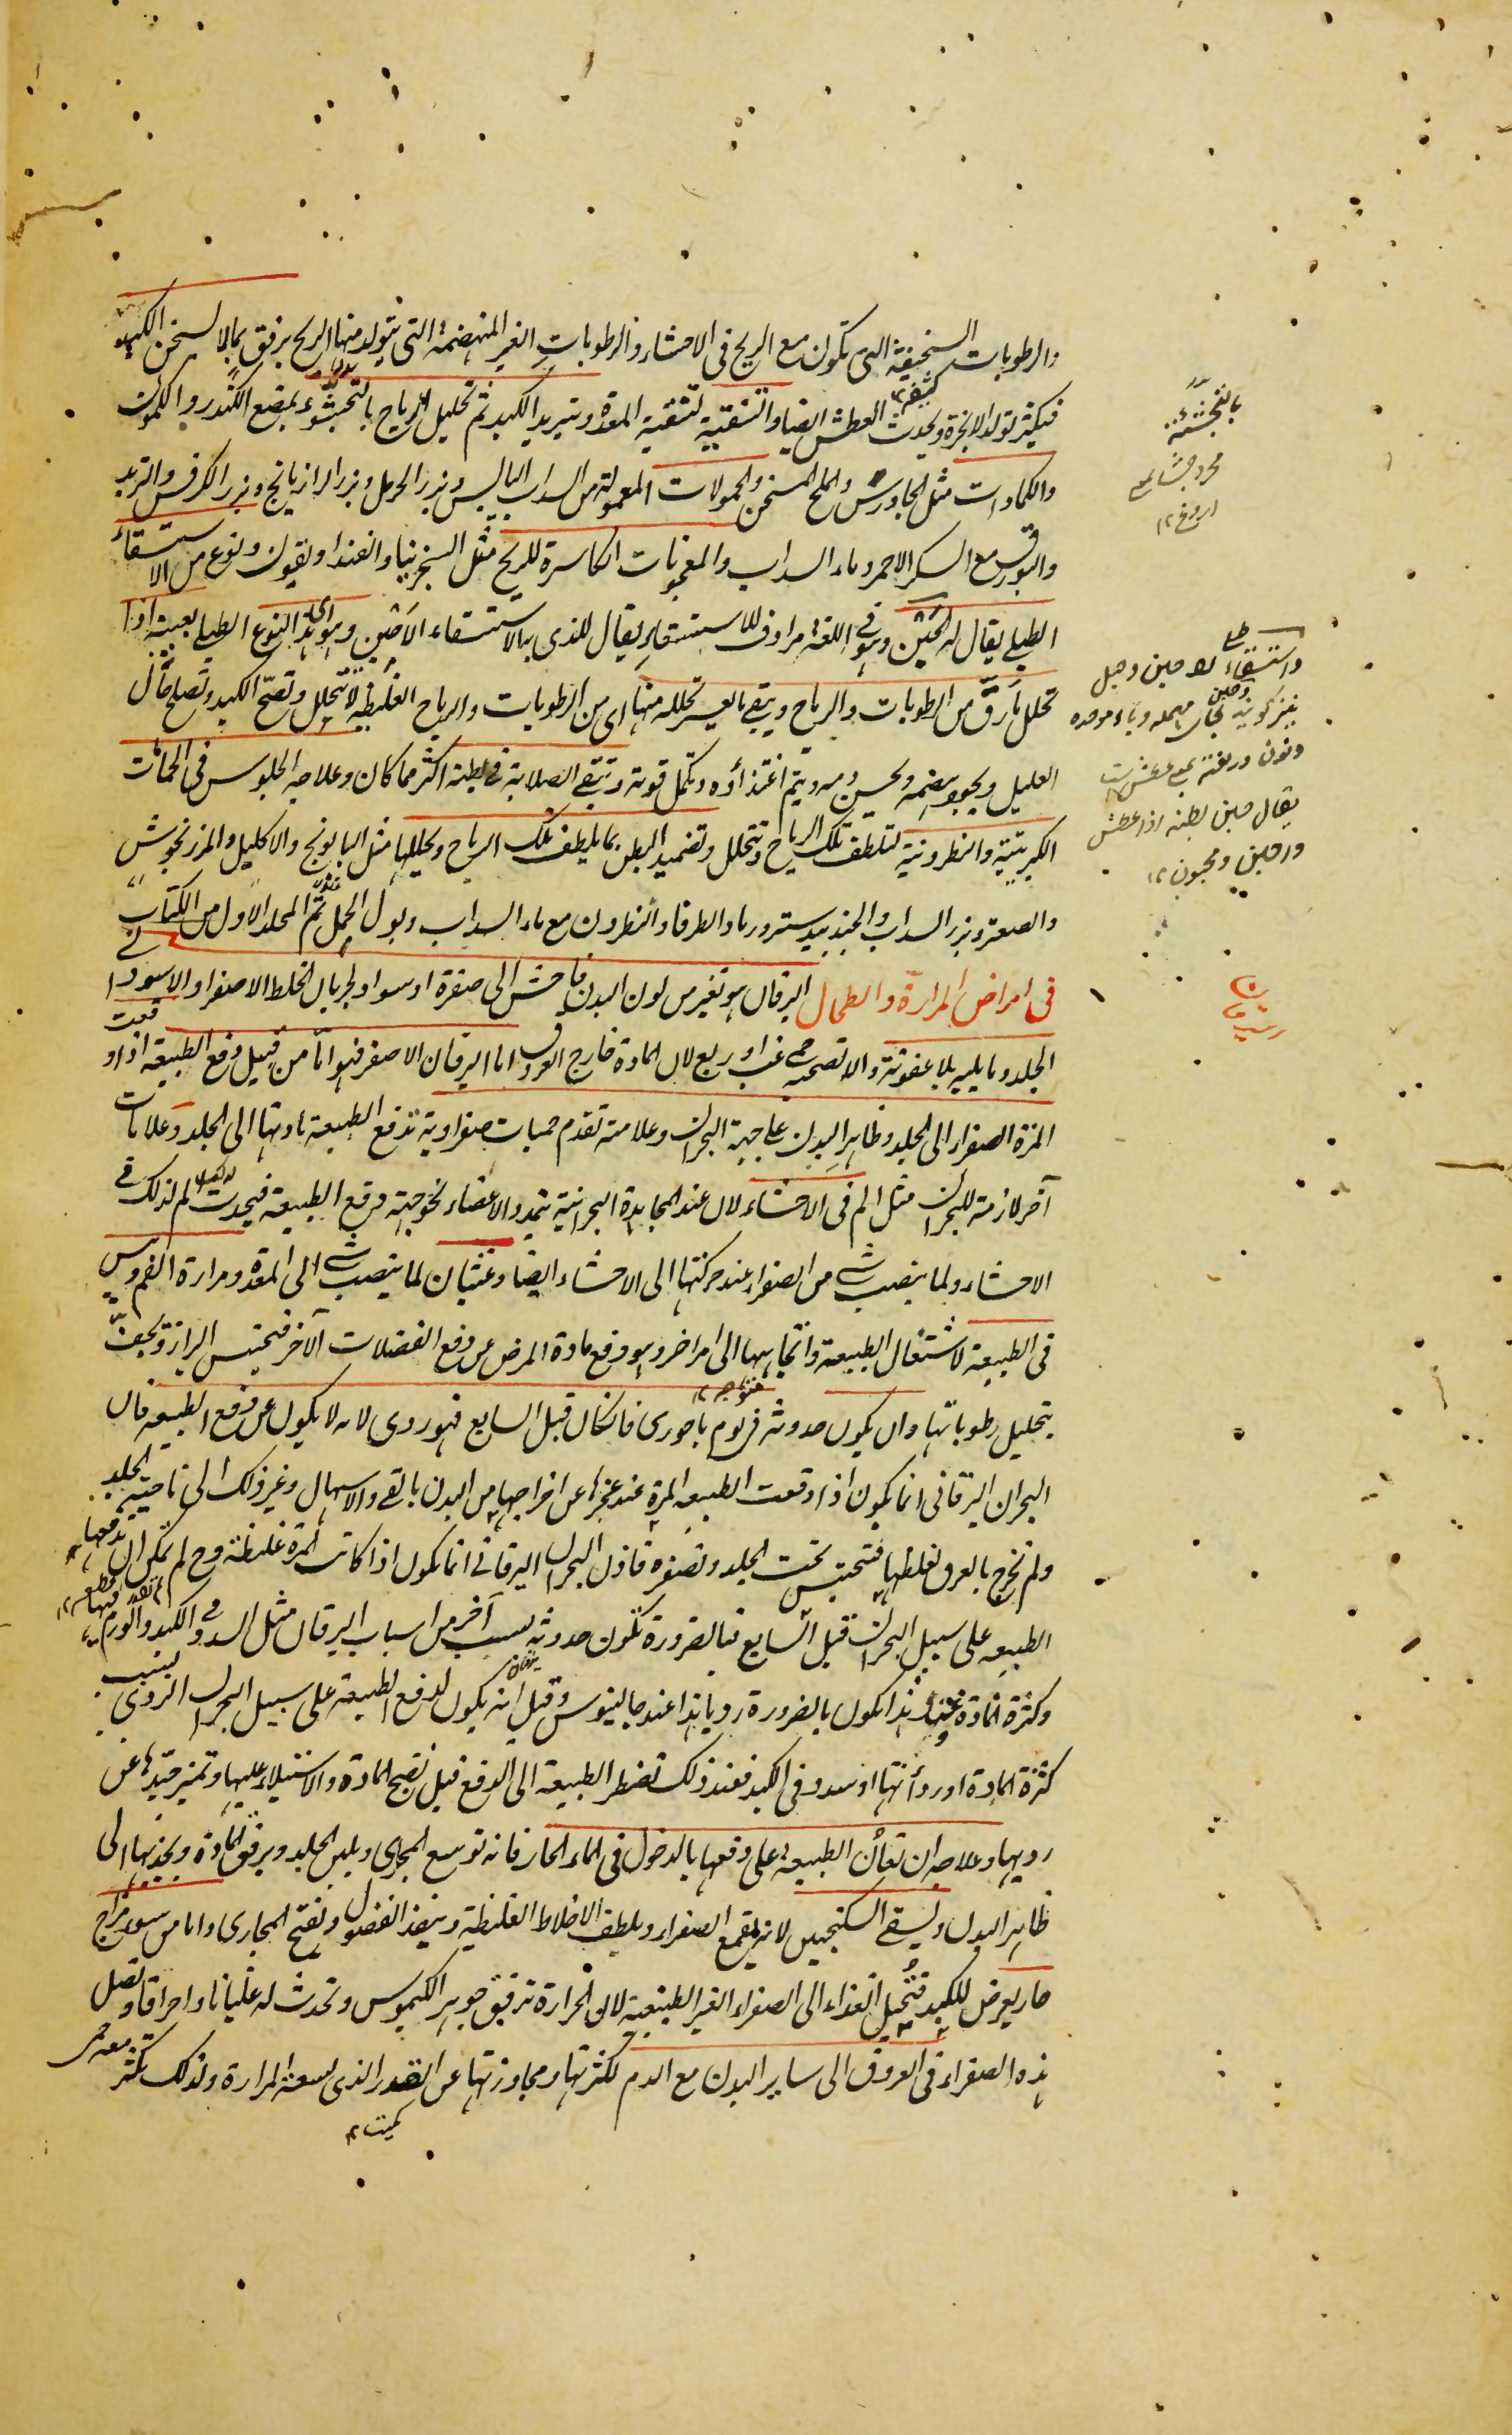 والرطوبات السخيفة التى تكون مع الريح فى الاحشاء والرطوبات الغير المنهضمة التى يتولد منها الريح برفق بما لا يسخن الكبد
فيكثر تولد الابخرة ويحدث العطش ايضا والتنقية لتنقية المعدة وتبريد الكبد ثم تحليل الرياح بالتجشوء بمضغ الكندر والكمون
والكمادات مثل الجاورس والملح المسخن والحمولات المعمولة من السداب اليابس وبزر الحرمل وبزر الرازيانج وبزر الكرفس والتربد
والبورق مع السكر الاحمر وماء السداب والمعجونات الكاسرة للريح مثل السنجرنيا والفنداديقون ونوع من الاستسقاء
الطبلى يقال له الحبن وهو فى اللغة مرادف للاستسقاء يقال للذى به الاستسقاء الاحبن وهو هذا النوع الطبلى بعينه اذا
تحلل مارق من الرطوبات والرياح ويبقى ما لعسر تحلله منها اى من الرطوبات والرياح الغليظة لا تتحلل وتصح الكبد وتصلح حال
العليل ويجود هضمه ويحسن دمه ويتم اغتذاؤه وتكمل قوته وتبقى الصلابة فى بطنه اكثر مما كان وعلاجه الجلوس فى الحمات
الكبريتية والنطرونية لتلطف تلك الرياح وتتحلل وتضميد البطن بما يلطف تلك الرياح ويحللها مثل البابونج والاكليل والمرزنجوش
والصعتر وبزر السداب والجندبيدستر ورماد الطرفا والنطرون مع ماء السداب وبول الجمل تم المجلد الاول من الكتاب
فى امراض المرارة والطحال اليرقان هو تغير من لون البدن فاحش الى صفرة او سواد لجريان الخلط الاصفر او الاسود الى
الجلد وما يليه بلا عفونة والا لصحبه حمى غب او ربع لان المادة خارج العروق اما اليرقان الاصفر فهو اما من قبيل دفع الطبيعة اذا دفعت
المرة الصفراء الى الجلد وظاهر البدن على جهة البحران وعلامته تقدم حميات صفراوية تدفع الطبيعة مادتها الى الجلد وعلامات
آخر لازمة للبحران مثل الم فى الاحشاء لان عند المجاهدة البحرانية تتمدد الاعضاء نحو جهة دفع الطبيعة فيحدث الم لذلك فى
الاحشاء ولما ينصب شى من الصفراء عند حركتها الى الاحشاء ايضا وغثيان لما ينصب شى الى المعدة ومرارة الفم ويبس
فى الطبيعة لاشتغال الطبيعة واتجاهها الى امر اخر وهو دفع مادة المرض عن دفع الفضلات الآخر فيحتبس البراز ويجف
بتحليل رطوباتها وان يكون حدوثه فى يوم باحورى فان كان قبل السابع فهو ردى لانه لا يكون عن دفع الطبيعة فان
البحران اليرقانى انما يكون اذا دفعت الطبيعة المرة عند عجزها عن اخراجها من البدن بالقى والاسهال وغير ذلك الى ناحية الجلد
ولم تخرج بالعرق لغلظها فتحتبس تحت الجلد وتصفره فاذن البحران اليرقانى انما يكون اذا كانت المرة غليظة وح لم يمكن ان تدفعها
الطبيعة على سبيل البحران قبل السابع فبالضرورة تكون حدوثه لسبب آخر من اسباب اليرقان مثل السدد فى الكبد والورم فيها
وكثرة المادة وهذا يكون بالضرورة رديا هذا عند جالينوس وقيل انه يكون لدفع الطبيعة على سبيل البحران الردى بسبب
كثرة المادة او ردائتها او سدد فى الكبد فعند ذلك تضطر الطبيعة الى الدفع قبل نضج المادة والاستيلاء عليها وتميز جيدها عن
رديها وعلاجه ان تعان الطبيعة على دفعها بالدخول فى الماء الحار فانه توسع المجارى ويلين الجلد ويرقق المادة ويجذبها الى
ظاهر البدن ويسقى السكنجبين لانه يقمع الصفراء ويلطف الاخلاط الغليظة وينفذ الفضول وتفتح المجارى واما من سوء مزاج
حار يعرض للكبد فتحيل الغذاء الى الصفراء الغير الطبيعية لان الحرارة ترقيق جوهر الكيموس وتحدث له غليانا واحراقا وتصل
هذه الصفراء فى العروق الى ساير البدن مع الدم لكثرتها ومجاوزتها عن القدر الذى يسعه المرارة ولذلك تكثر
معه حمى
كميت ١٢
متوجه ١٢
يرقان
واستسقاء
بغير
مهمله وباء موحده
ونون
يقال حبن بطنه اذا عطش
ومحبون ١٢